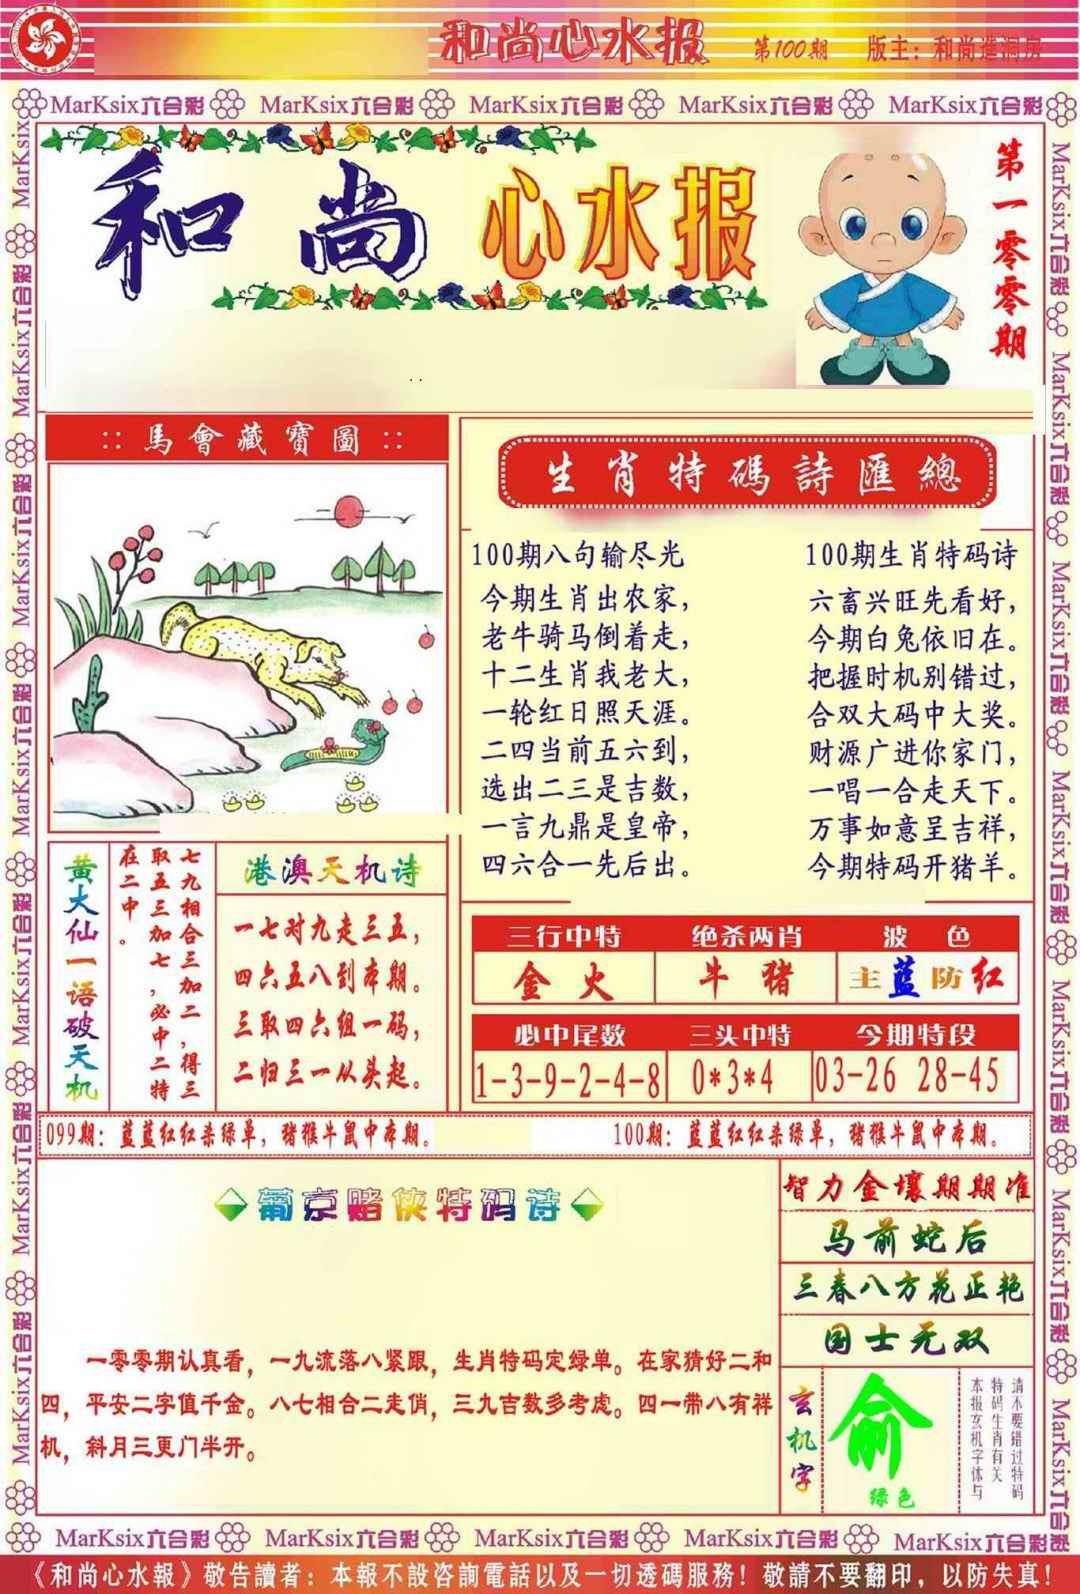 和尚心水报 第100期 版主：和尚進洞房
MarKsix六合彩 MarKsix六合彩 MarKsix六合彩 MarKsix六合彩 MarKsix六合彩
和尚 心水报
第一零零期
::馬會藏寶圖::
生肖特碼詩匯總
100期八句输尽光
今期生肖出农家，
老牛骑马倒着走，
十二生肖我老大，
一轮红日照天涯。
二四当前五六到，
选出二三是吉数，
一言九鼎是皇帝，
四六合一先后出。
100期生肖特码诗
六畜兴旺先看好，
今期白兔依旧在。
把握时机别错过，
合双大码中大奖。
财源广进你家门，
一唱一合走天下。
万事如意呈吉祥，
今期特码开猪羊。
黄大仙一语破天机
七九相合三加二，得三
取五三加七，必中二特
在二中。
港澳天机诗
一七对九走三五，
四六五八到本期。
三取四六组一码，
二归三一从头起。
三行中特 绝杀两肖 波色
金火 牛猪 主蓝防红
必中尾数 三头中特 今期特段
1-3-9-2-4-8 0*3*4 03-26 28-45
099期：蓝蓝红红杀绿单，猪猴牛鼠中本期。
100期：蓝蓝红红杀绿单，猪猴牛鼠中本期。
葡京赌侠特码诗
一零零期认真看，一九流落八紧跟，生肖特码定绿单。在家猜好二和
四，平安二字值千金。八七相合二走俏，三九吉数多考虑。四一带八有祥
机，斜月三更门半开。
智力金壤期期准
马前蛇后
三春八方花正艳
国士无双
玄机字
俞
绿色
请不要错过特码
特码生肖有关
本报玄机字体与
MarKsix六合彩 MarKsix六合彩 MarKsix六合彩 MarKsix六合彩 MarKsix六合彩
《和尚心水報》敬告讀者：本報不設咨詢電話以及一切透碼服務！敬請不要翻印，以防失真！